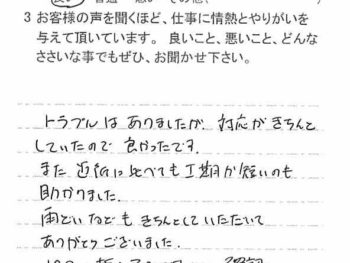 3 お客様の声を聞くほど、仕事に情熱とやりがいを
与えて頂いています。 良いこと、悪いこと、どんな
ささいな事でもぜひ、お聞かせ下さい。
トラブルは ありましたが、対応がきちんと
していたので 良かったです。
また 近所に比べても工期が短いのも
助かりました。
雨どいなども きちんとしていただいて
ありがとうございました。